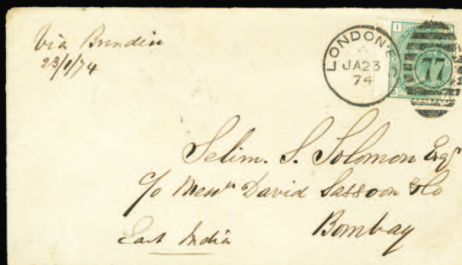 Via Brindisi
23/1/74
LONDON E.C
JA 23
74
77
Selim. S. Solomon Esqr
c/o Messrs David Sassoon & Co
Bombay
East India